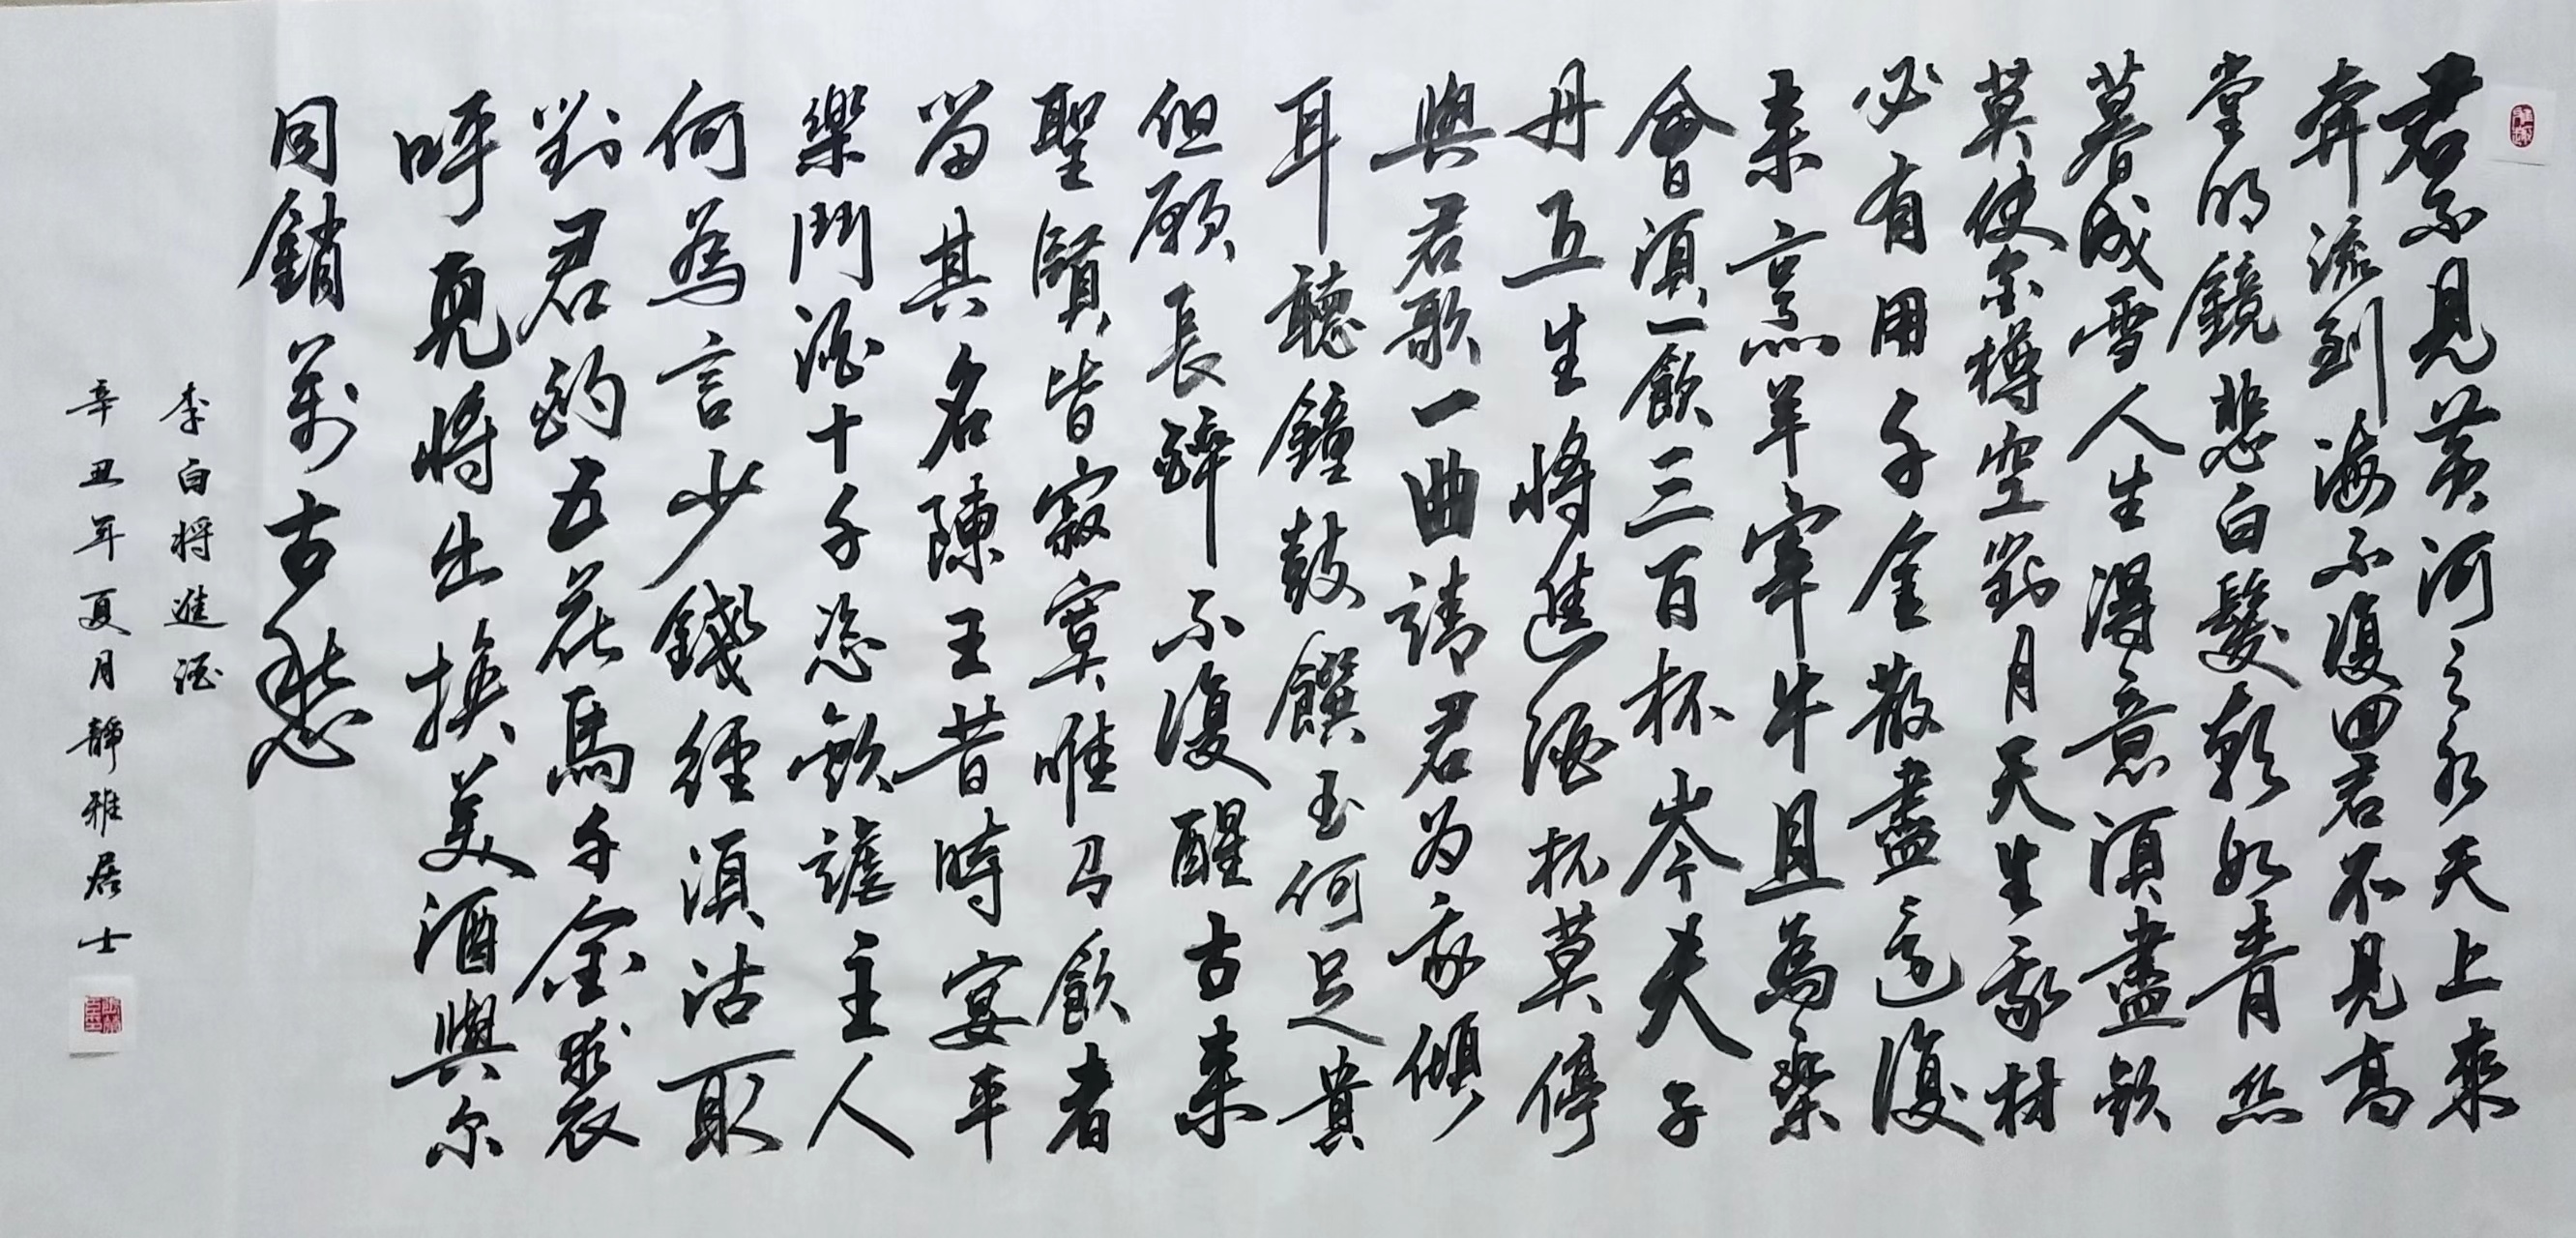 君不見黃河之水天上來
奔流到海不復回君不見高
堂明鏡悲白髮朝如青絲
暮成雪人生得意須盡歡
莫使金樽空對月天生我材
必有用千金散盡還復
来烹羊宰牛且為樂
會須一飲三百杯岑夫子
丹丘生將進酒杯莫停
與君歌一曲請君为我傾
耳聽鐘鼓饌玉何足貴
但願長醉不復醒古来
聖賢皆寂寞唯有飲者
留其名陳王昔時宴平
樂鬥酒十千恣歡謔主人
何為言少錢經須沽取
對君酌五花馬千金裘
呼兒將出換美酒與尔
同銷萬古愁
李白将進酒
辛丑年夏月靜雅居士